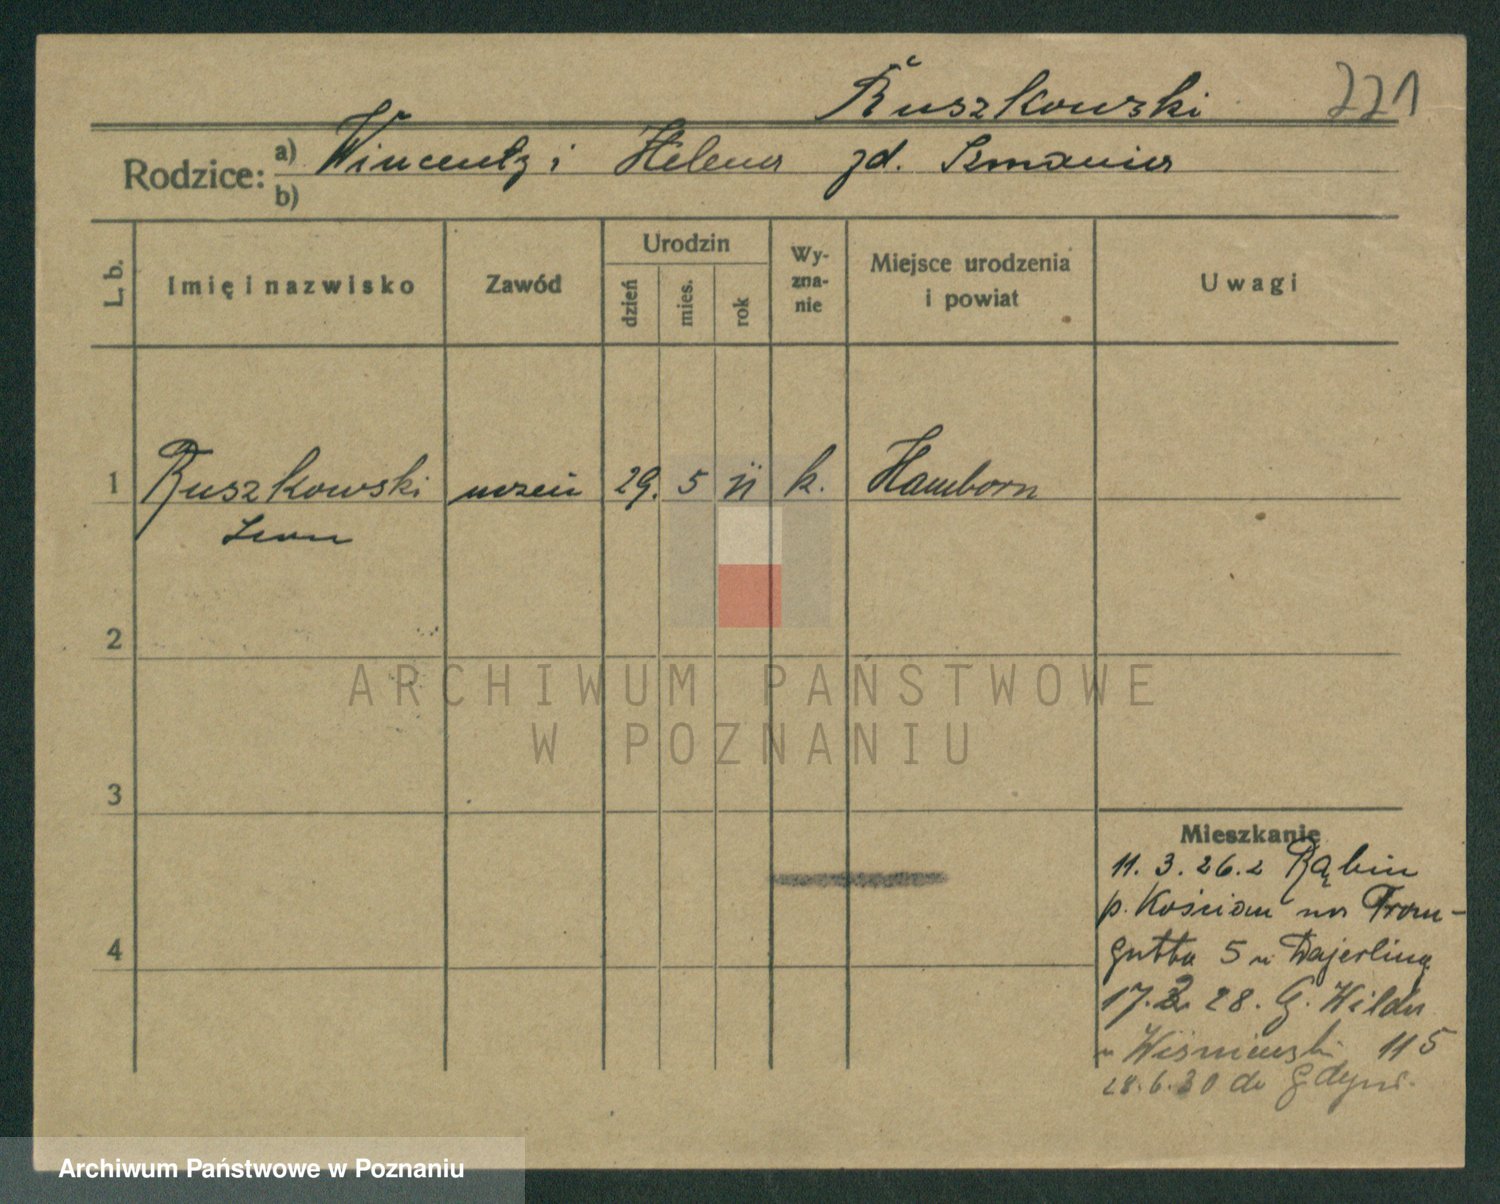 Ruszkowski 221
Rodzice: a) Wincenty i Helena zd. Szmania
b)
L. b.
Imię i nazwisko
Zawód
Urodzin
dzień
mies.
rok
Wy-
zna-
nie
Miejsce urodzenia
i powiat
Uwagi
1 Ruszkowski uczeń 29. 5 11 k. Hamborn
Leon
2
3
4
Mieszkanie
11. 3. 26. z Rąbin
p. Kościan na Trau-
gutta 5 u Wajerling
17. 28. G. Wilda
u Wiśniewski 115
28. 6. 30 do Gdyni.
ARCHIWUM PAŃSTWOWE
W POZNANIU
Archiwum Państwowe w Poznaniu